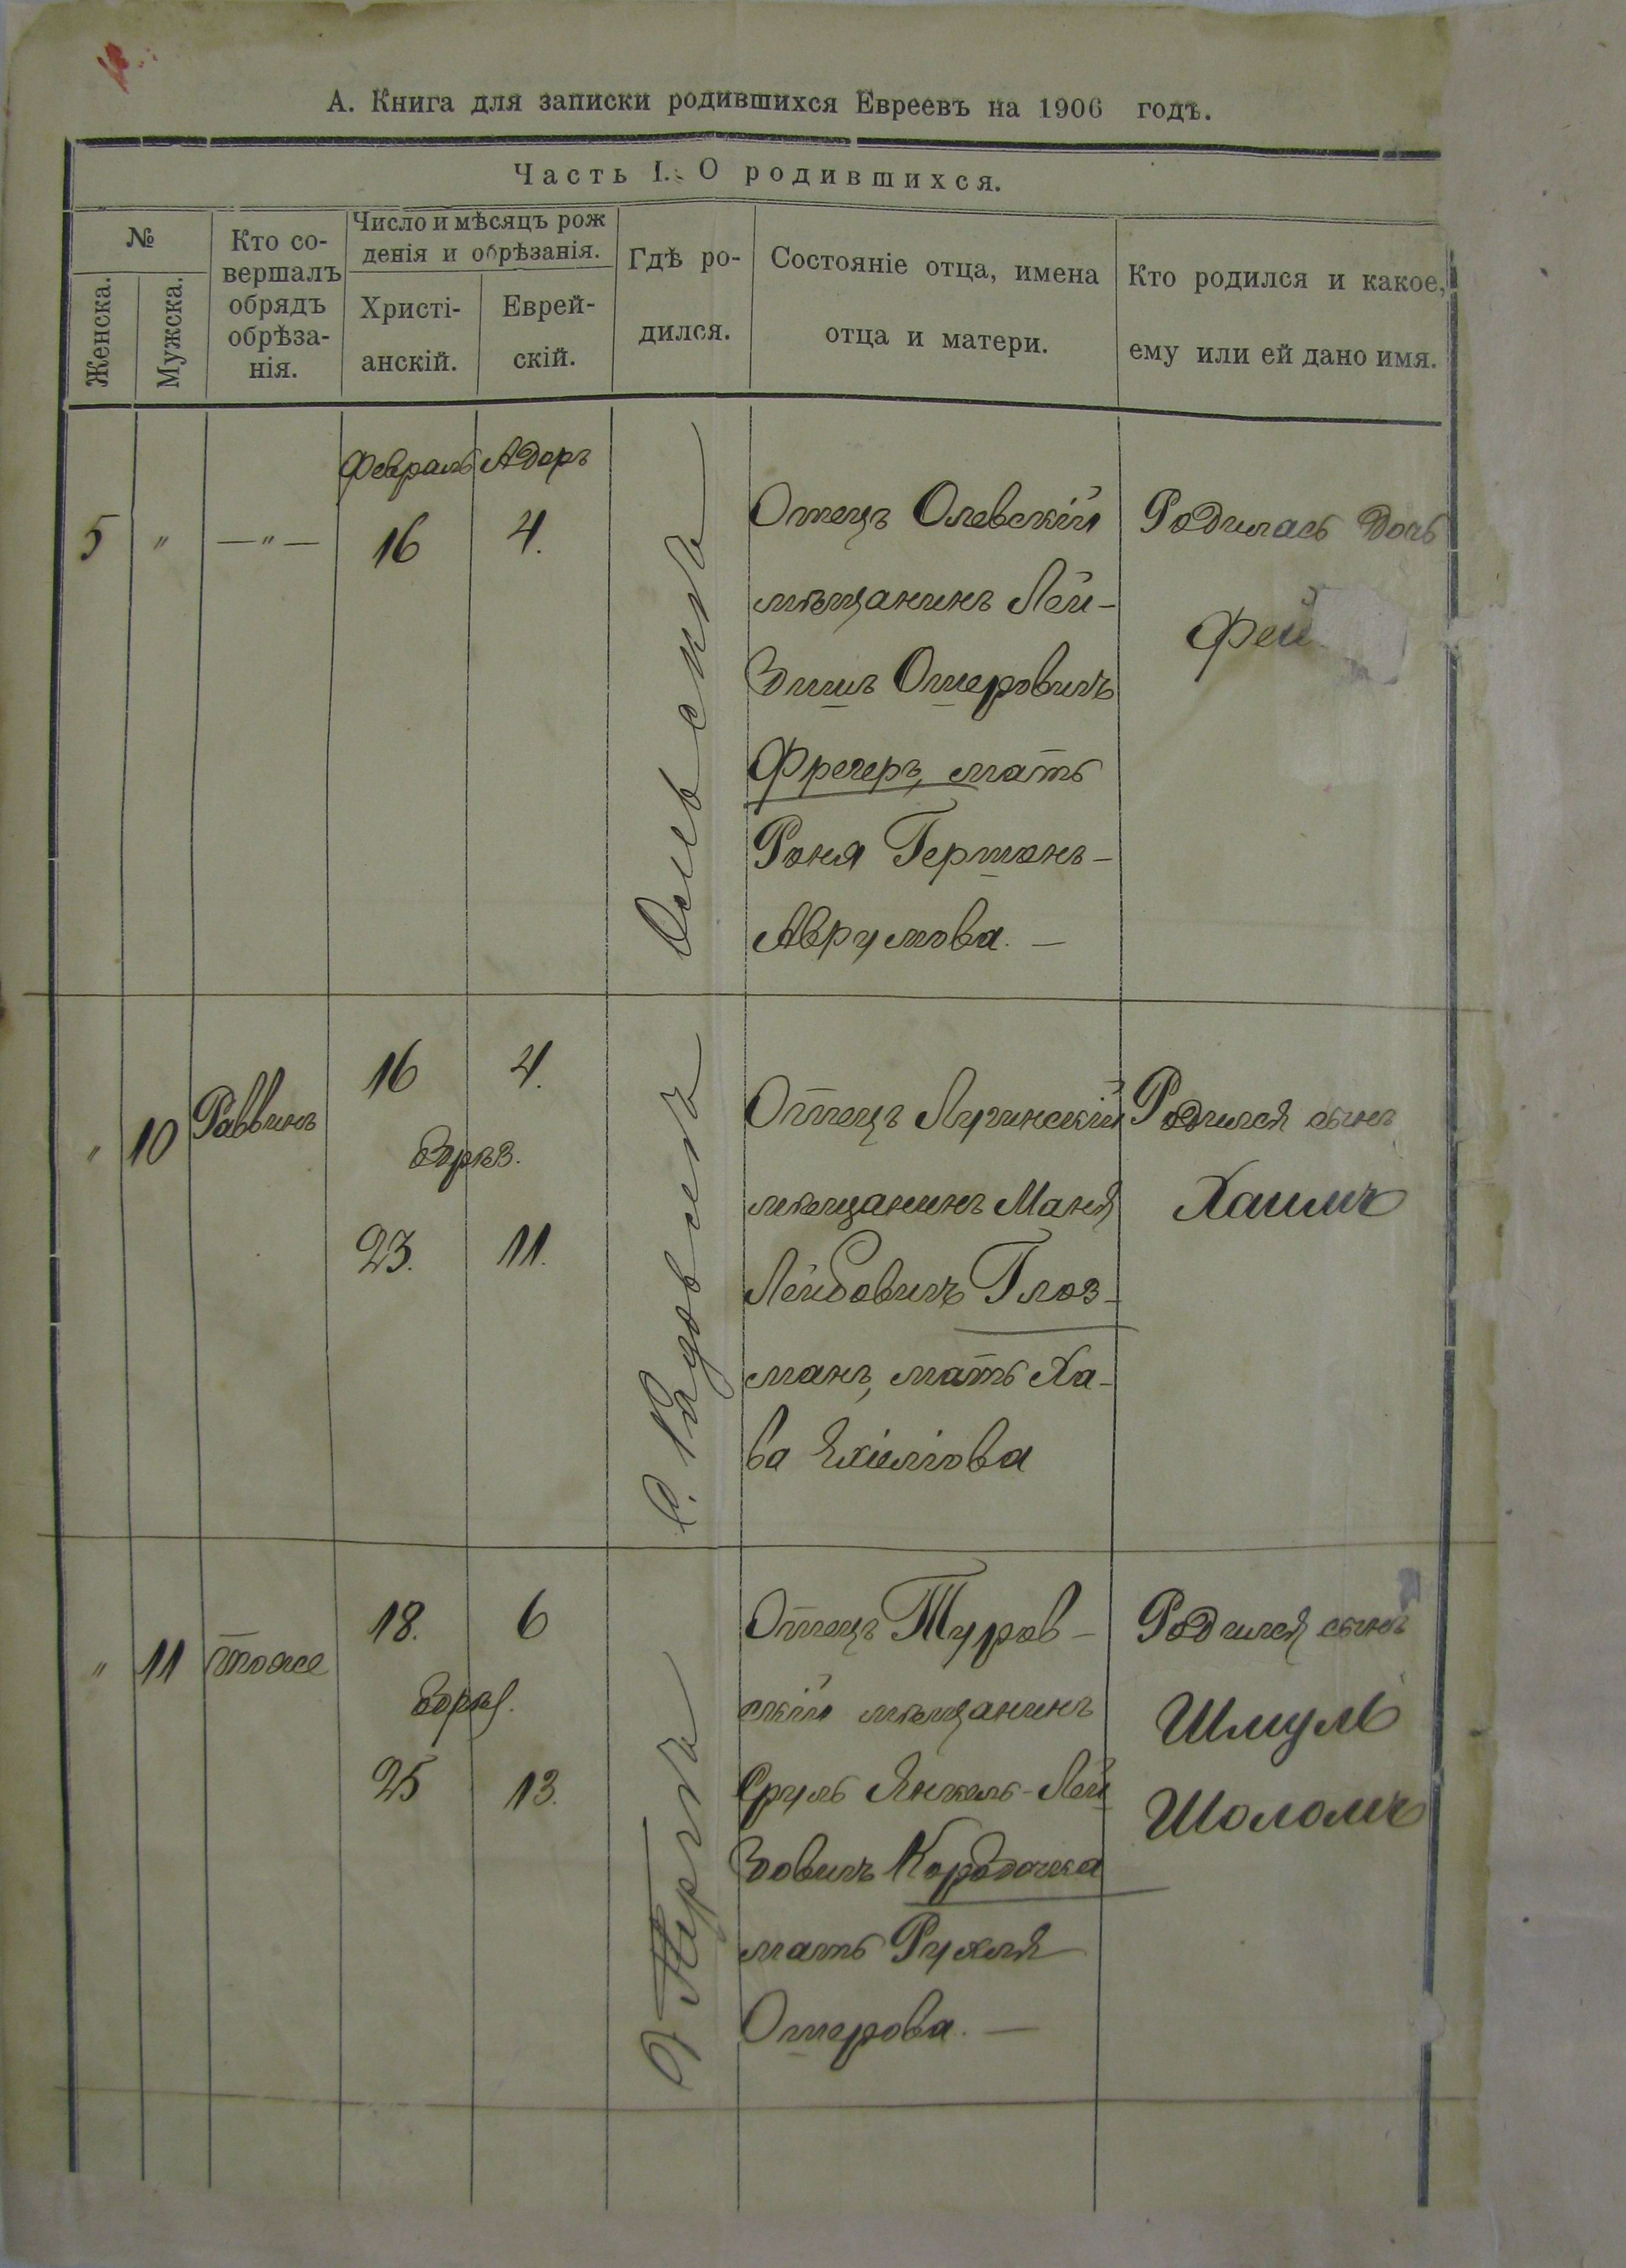 А. Книга для записки родившихся Евреевъ на 1906 годъ.
Часть I. О родившихся.
№
Женска.
Мужска.
Кто со-
вершалъ
обрядъ
обрѣза-
нія.
Число и мѣсяцъ рож
денія и обрѣзанія.
Христі-
анскій.
Еврей-
скій.
Гдѣ ро-
дился.
Состояніе отца, имена
отца и матери.
Кто родился и какое,
ему или ей дано имя.
Февраль Адаръ
5 " —"— 16 4.
Олевскъ
Отецъ Олевскій
мѣщанинъ Лей-
Ошеровичъ
Фрегеръ, мать
Роня Гершонъ-
Аврумова. —
Родилась дочь
Фей
" 10 Раввинъ
16 4.
обрѣз.
23. 11.
Отецъ Лугинскій
мѣщанинъ Маня
Лейбовичъ Глоз-
манъ, мать Ха-
ва
Родился сынъ
Хаимъ
" 11 тоже
18. 6
обрѣз.
25 13.
Отецъ Туров-
скій мѣщанинъ
Сруль Янкель-Лей
зовичъ
мать Рухля
Ошерова. —
Родился сынъ
Шмуль
Шоломъ